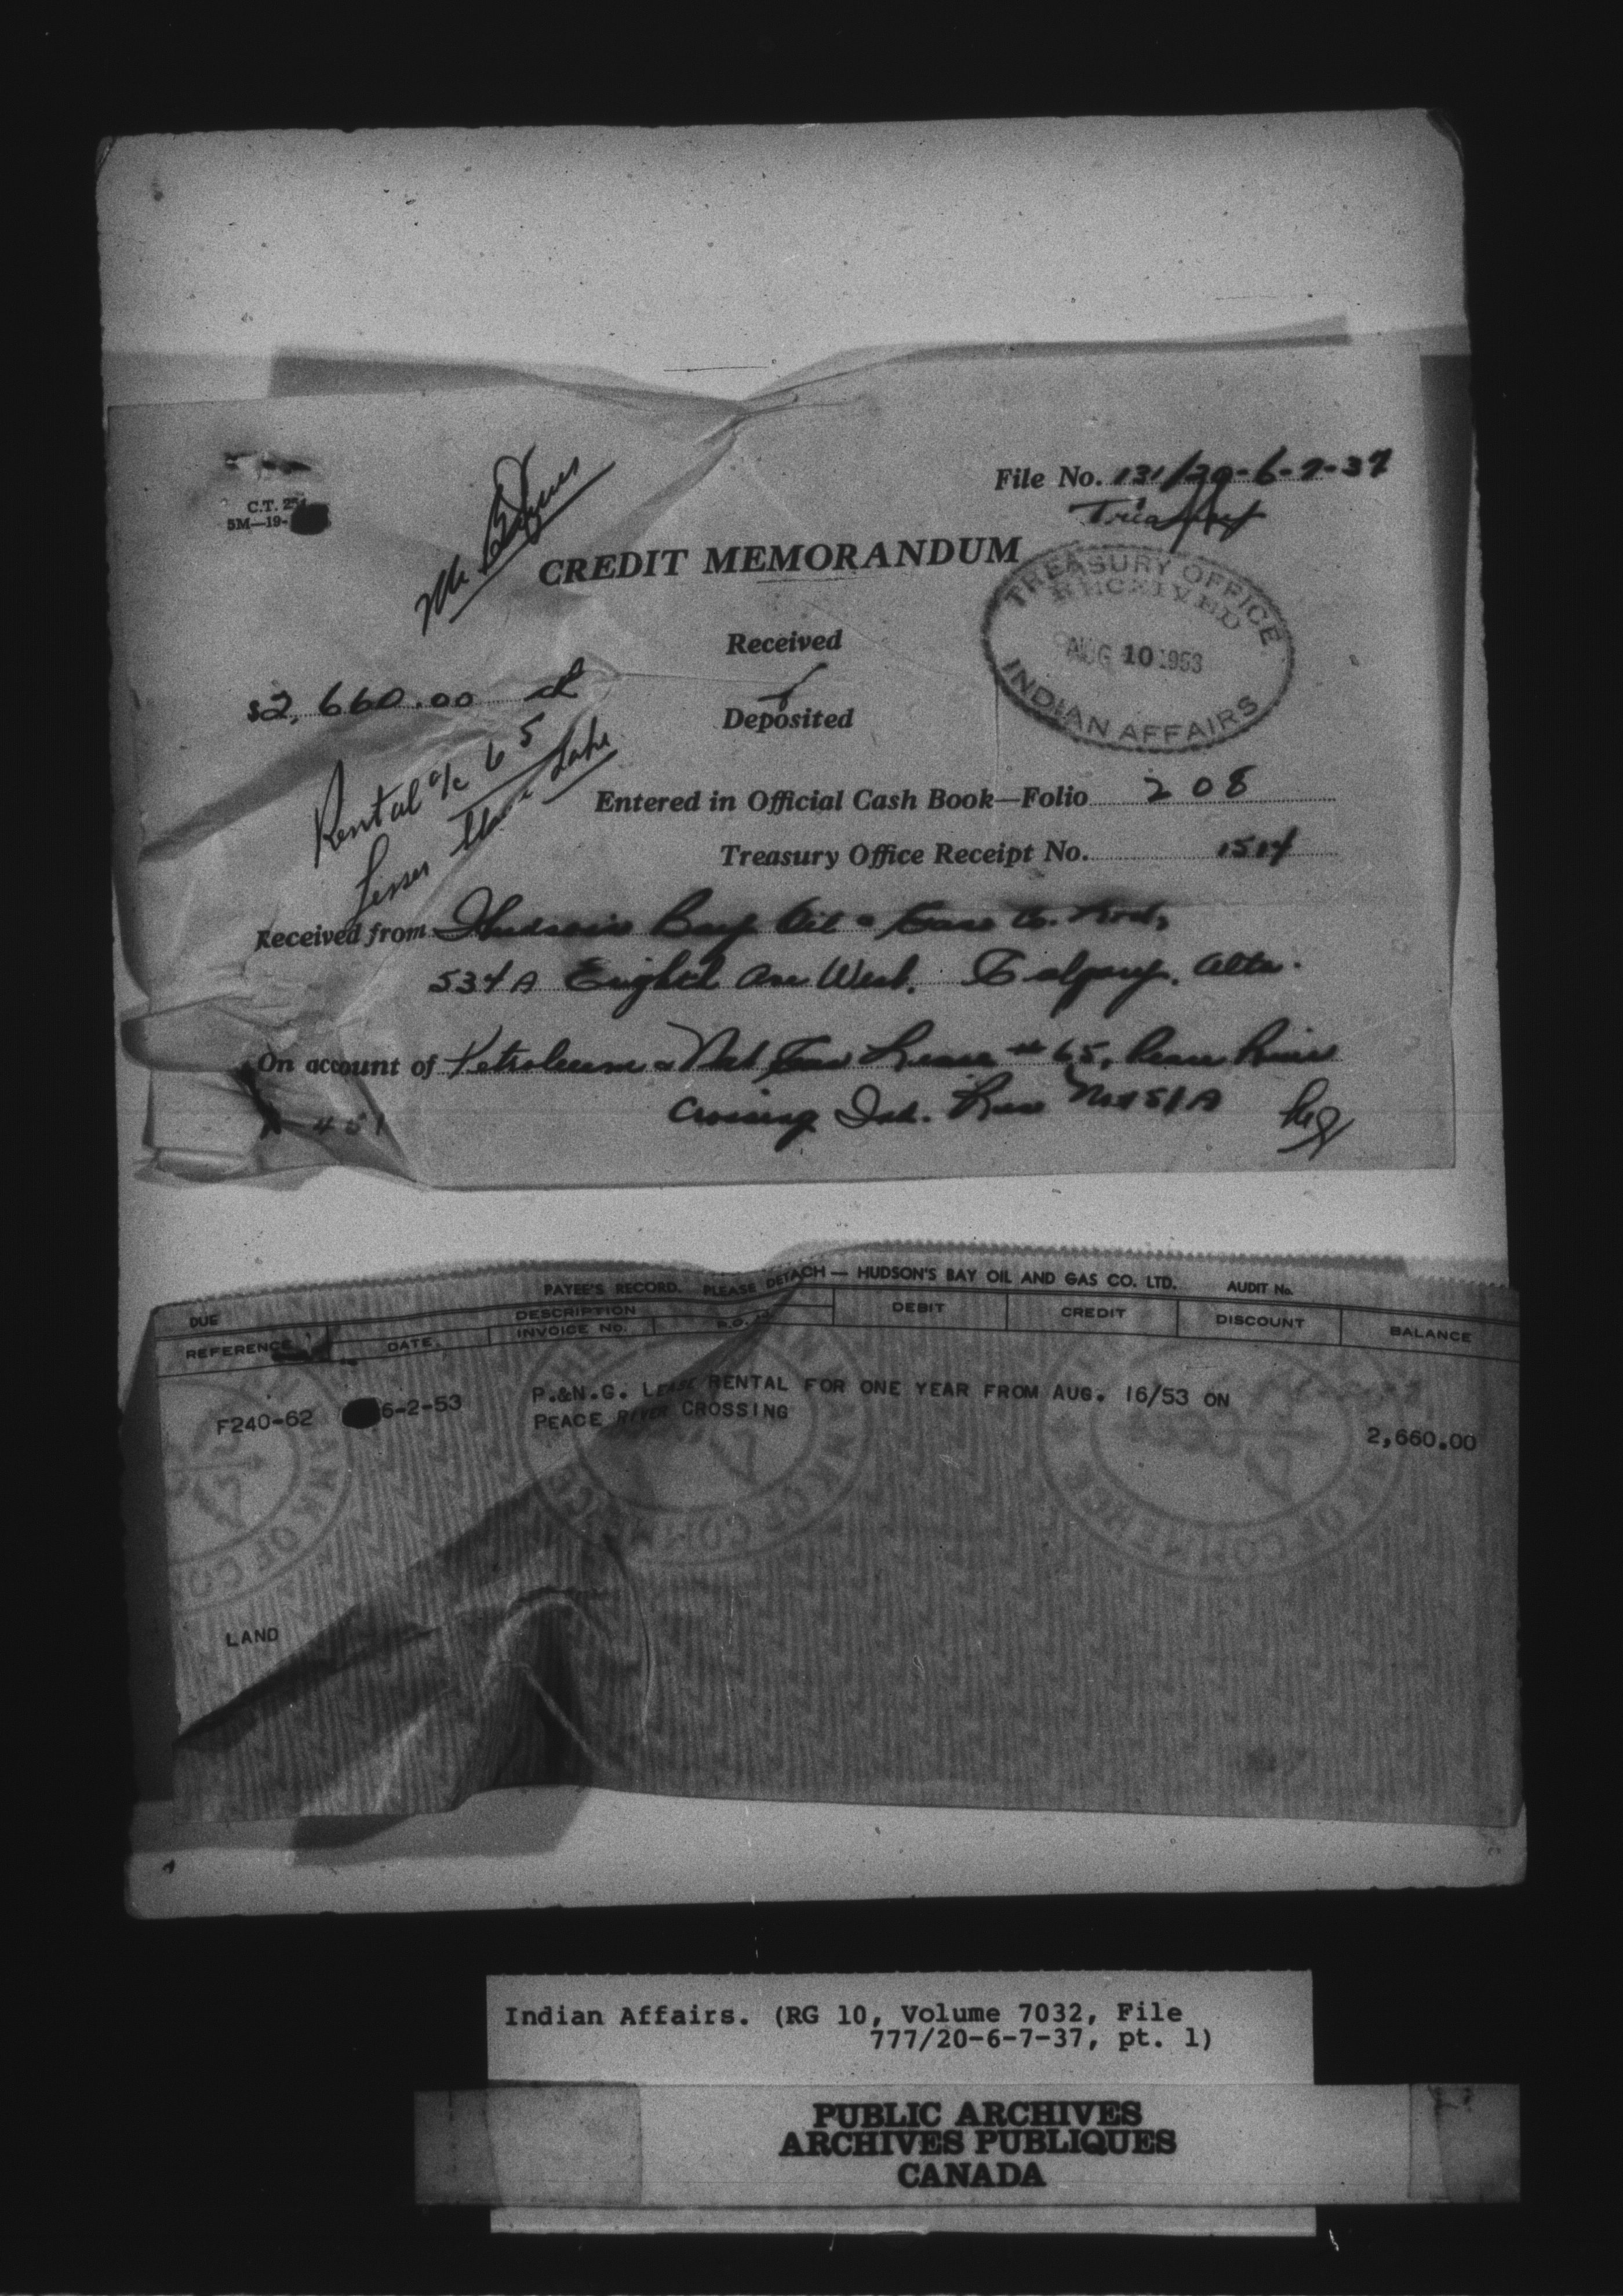 C.T. 254
5M-19-
File No. 131/20-6-7-37
Treasury
CREDIT MEMORANDUM
TREASURY OFFICE
RECEIVED
AUG 10 1953
INDIAN AFFAIRS
Received
$2,660.00
Deposited
Rental a/c 65
Lesser Slave Lake
Entered in Official Cash Book—Folio 208
Treasury Office Receipt No. 1514
Received from Hudson's Bay Oil & Gas Co. Ltd,
534A Eighth Ave West. Calgary. Alta.
On account of Petroleum & Nat Gas Lease # 65, Peace River
Crossing Ind. Res No 151A
PAYEE'S RECORD. PLEASE DETACH — HUDSON'S BAY OIL AND GAS CO. LTD. AUDIT No.
DUE DESCRIPTION DEBIT CREDIT DISCOUNT BALANCE
REFERENCE DATE INVOICE No. P.O. No.
F240-62 6-2-53 P.&N.G. LEASE RENTAL FOR ONE YEAR FROM AUG. 16/53 ON
PEACE RIVER CROSSING 2,660.00
LAND
Indian Affairs. (RG 10, Volume 7032, File
777/20-6-7-37, pt. 1)
PUBLIC ARCHIVES
ARCHIVES PUBLIQUES
CANADA